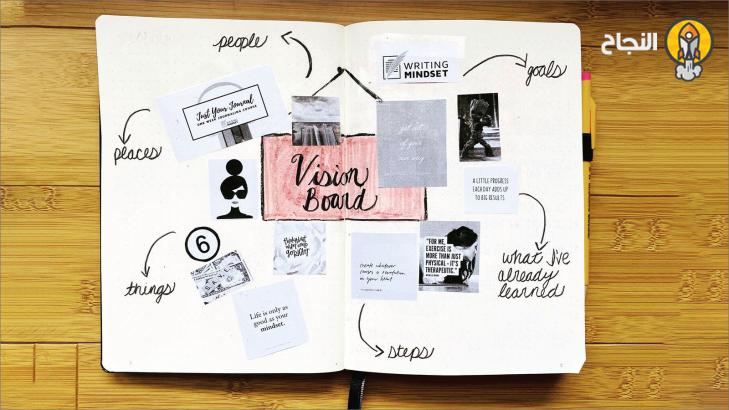 people
WRITING
MINDSET
النجاح
goals
Just Your Journal
ONE WEEK JOURNALING COURSE
places
get out
of your
own way
Vision
Board
A LITTLE PROGRESS
EACH DAY ADDS UP
TO BIG RESULTS
6
"FOR ME,
EXERCISE IS
MORE THAN JUST
PHYSICAL - IT'S
THERAPEUTIC."
what I've
already
learned
things
create whatever
causes a revolution
in your heart
Life is only as
good as your
mindset.
steps